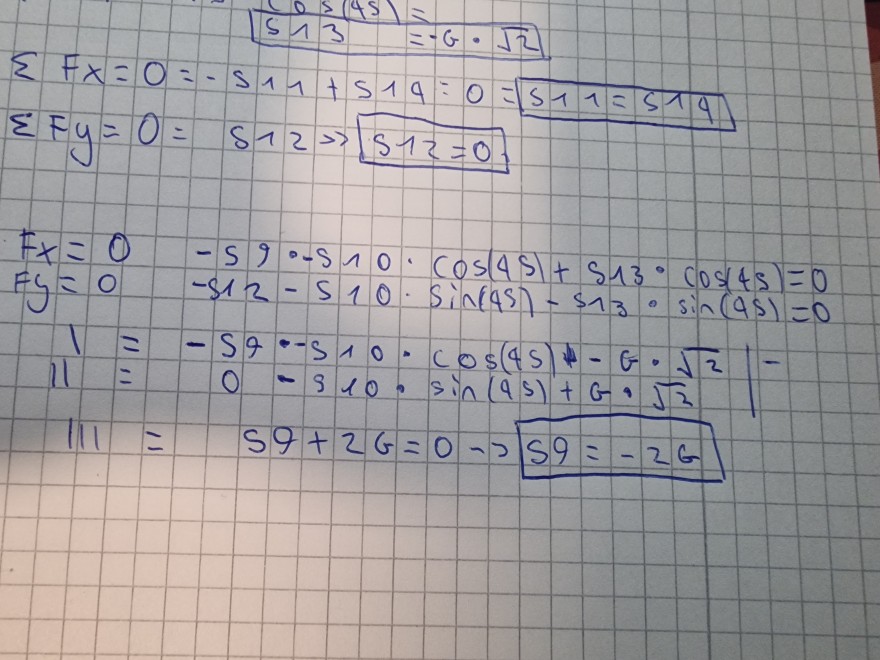 cos(45) =
S13 = -G · √2
Σ Fx = 0 = - S11 + S14 = 0 = S11 = S14
Σ Fy = 0 = S12 => S12 = 0
Fx = 0 - S9 · - S10 · cos(45) + S13 · cos(45) = 0
Fy = 0 - S12 - S10 · sin(45) - S13 · sin(45) = 0
I = - S9 · - S10 · cos(45) - G · √2 | -
II = 0 - S10 · sin(45) + G · √2 |
III = S9 + 2G = 0 -> S9 = - 2G